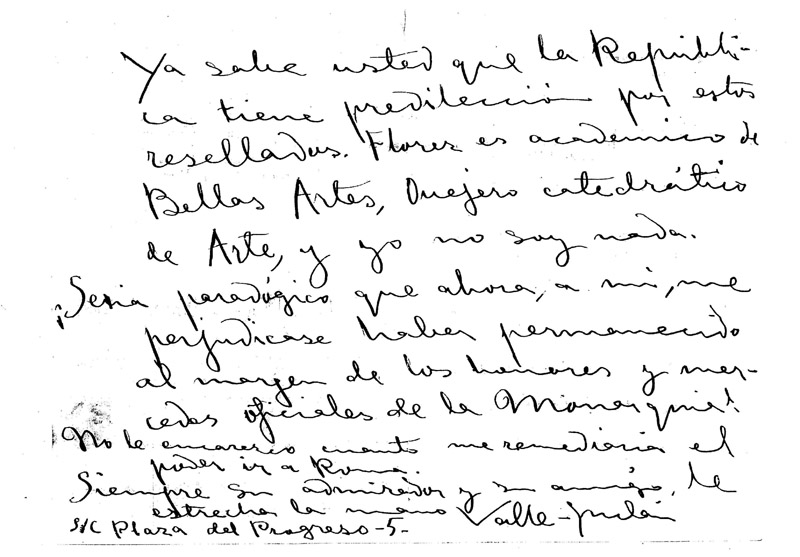 Ya sabe usted que la Repúbli-
ca tiene predilección por estos
resellados. Florez es academico de
Bellas Artes, Ovejero catedrático
de Arte, y yo no soy nada.
¡Seria paradógico que ahora, a mi, me
perjudicase haber permanecido
al margen de los honores y mer-
cedes oficiales de la Monarquia!
No le encarezco cuanto me remediaria el
poder ir a Roma.
Siempre su admirador y su amigo, le
estrecha la mano Valle-Inclán
S/C Plaza del Progreso-5-